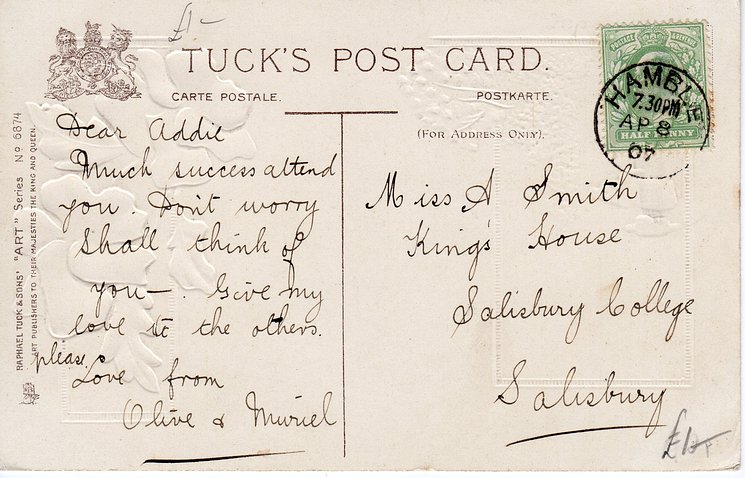 £1-
TUCK'S POST CARD.
CARTE POSTALE.
POSTKARTE.
(FOR ADDRESS ONLY).
RAPHAEL TUCK & SONS' "ART" Series No 6874
ART PUBLISHERS TO THEIR MAJESTIES THE KING AND QUEEN.
Dear Addie
Much success attend
you. Don't worry
Shall think of
you—. Give my
love to the others.
please
Love from
Olive & Muriel
POSTAGE & REVENUE
HALF PENNY
HAMBLE
7.30PM
AP 8
07
Miss A Smith
King's House
Salisbury College
Salisbury
£1-